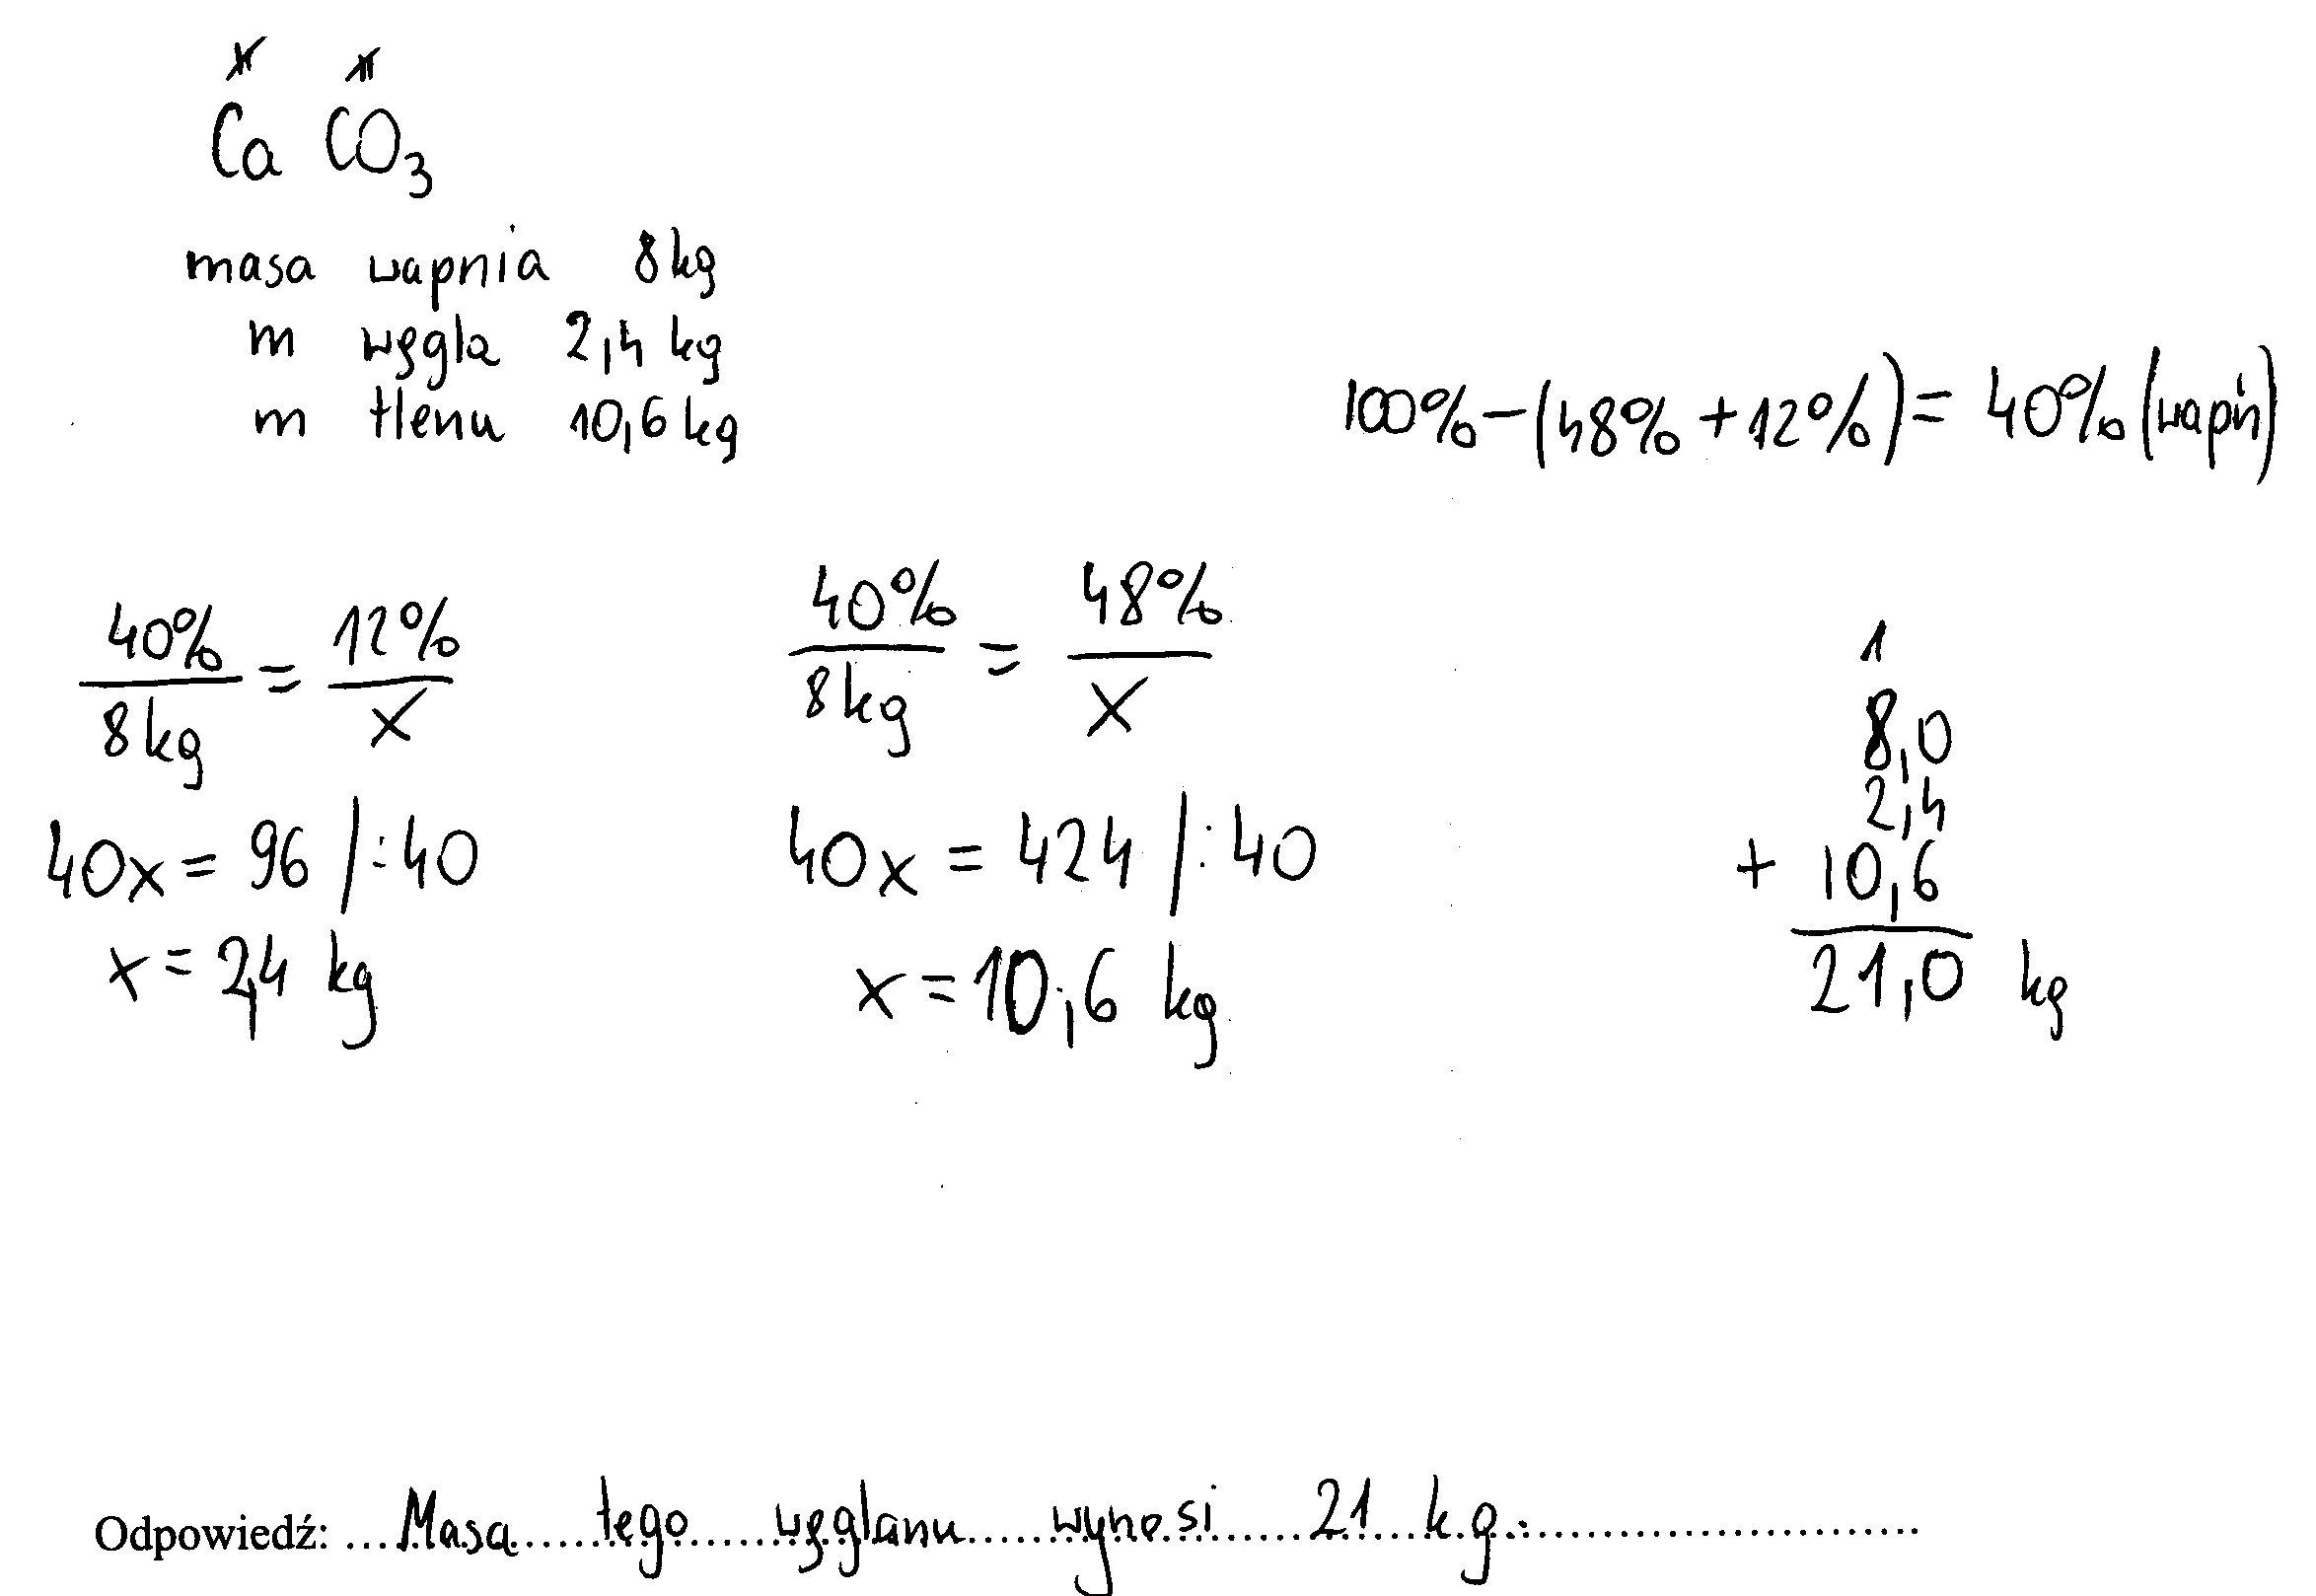 II II
Ca CO₃
masa wapnia 8kg
m węgla 2,4 kg
m tlenu 10,6 kg
100% - (48% + 12%) = 40% (wapń)
40%/8kg = 12%/x
40x = 96 /:40
x = 2,4 kg
40%/8kg = 48%/x
40x = 424 /:40
x = 10,6 kg
1
8,0
2,4
+ 10,6
21,0 kg
Odpowiedź: Masa tego węglanu wynosi 21 kg.